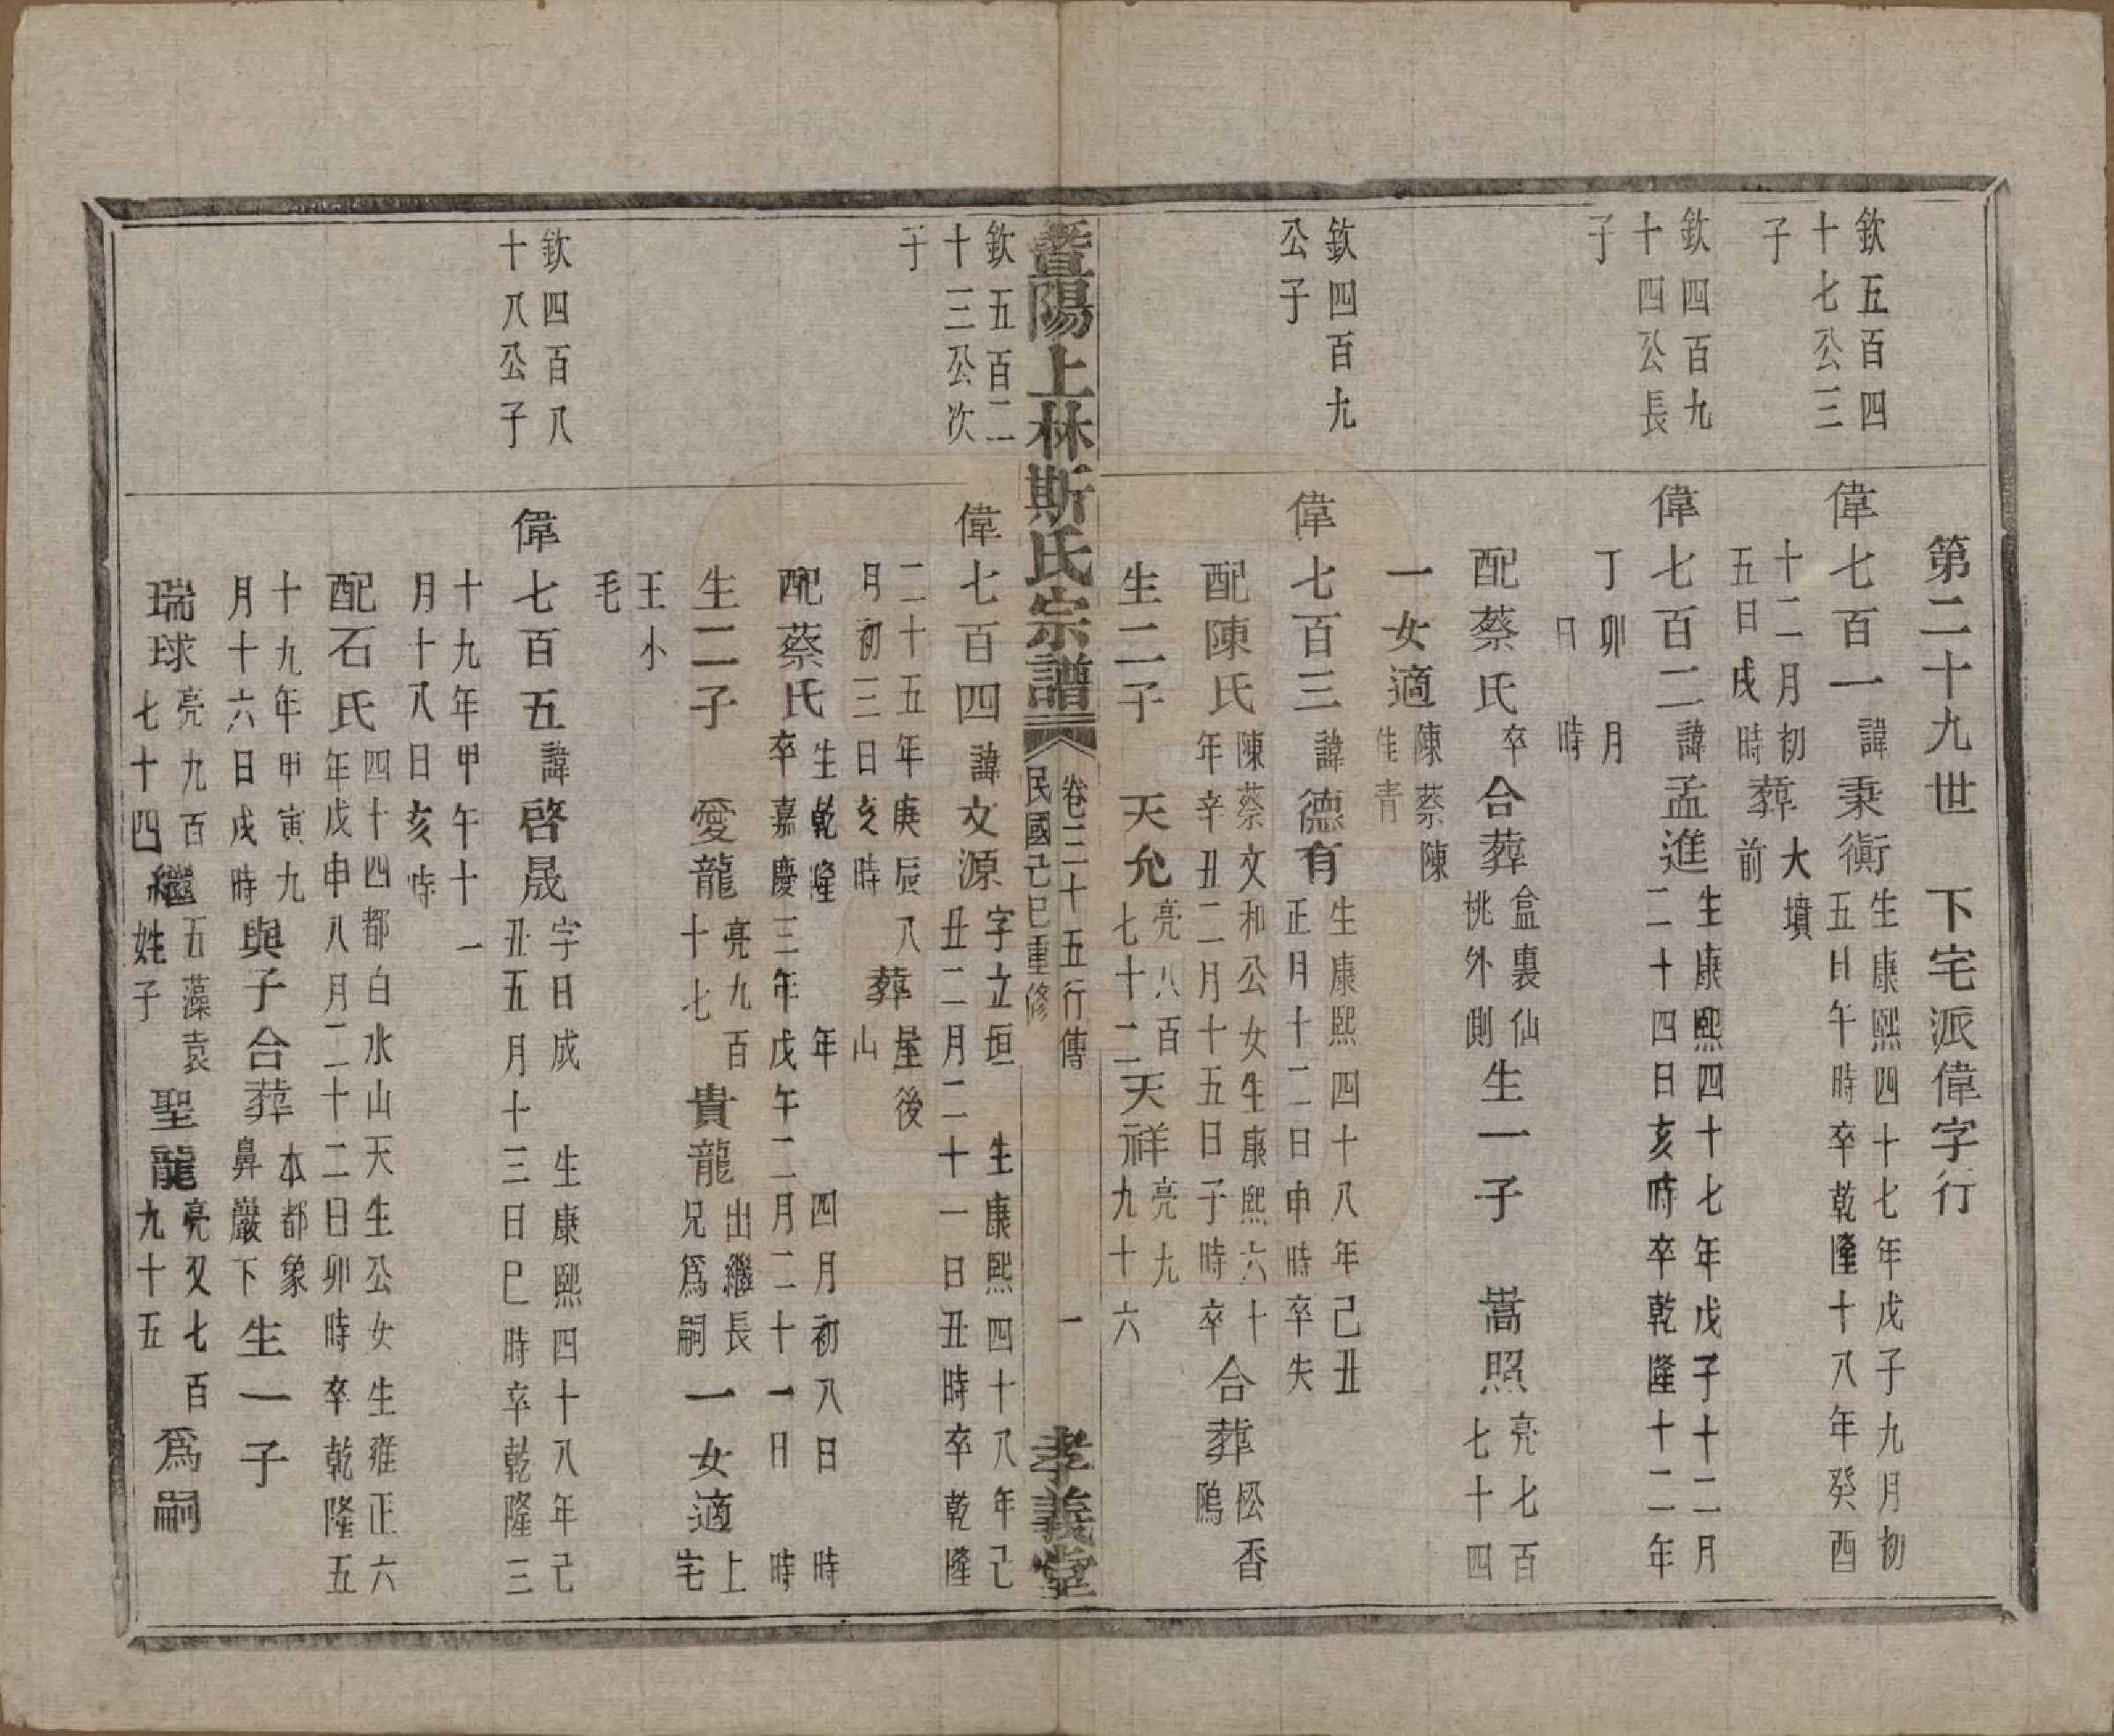 第二十九世　下宅派偉字行
欽五百四
十七公三
子
偉七百一諱秉衡
生康熙四十七年戊子九月初
五日午時卒乾隆十八年癸酉
十二月初
五日戌時
葬
大墳
前
欽四百九
十四公長
子
偉七百二諱孟進
生康熙四十七年戊子十二月
二十四日亥時卒乾隆十二年
丁卯　月
日　時
配蔡氏卒合葬
盒裏仙
桃外側
生一子　嵩照
亮七百
七十四
一女適
陳蔡陳
佳青
欽四百九
公子
偉七百三諱德有
生康熙四十八年己丑
正月十二日申時卒失
配陳氏
陳蔡文和公女生康熙六十
年辛丑二月十五日子時卒
合葬
松香
隖
生二子　天允
亮八百
七十二
天祥
亮九
九十六
暨陽上林斯氏宗譜
卷三十五行傳
民國己巳重修
一
孝義堂
欽五百二
十三公次
子
偉七百四諱文源
字立垣　生康熙四十八年己
丑二月二十一日丑時卒乾隆
二十五年庚辰八
月初三日亥時
葬
屋後
山
配蔡氏
生乾隆　年　四月初八日　時
卒嘉慶三年戊午二月二十一日　時
生二子　愛龍
亮九百
十七
貴龍
出繼長
兄爲嗣
一女適
上
宅
王小
毛
欽四百八
十八公子
偉七百五諱啓晟
字日成　生康熙四十八年己
丑五月十三日巳時卒乾隆三
十九年甲午十一
月十八日亥時
配石氏
四十四都白水山天生公女生雍正六
年戊申八月二十二日卯時卒乾隆五
十九年甲寅九
月十六日戌時
與子合葬
本都象
鼻巖下
生一子
瑞球
亮九百
七十四
繼
五藻袁
姓子
聖龍
亮又七百
九十五
爲嗣